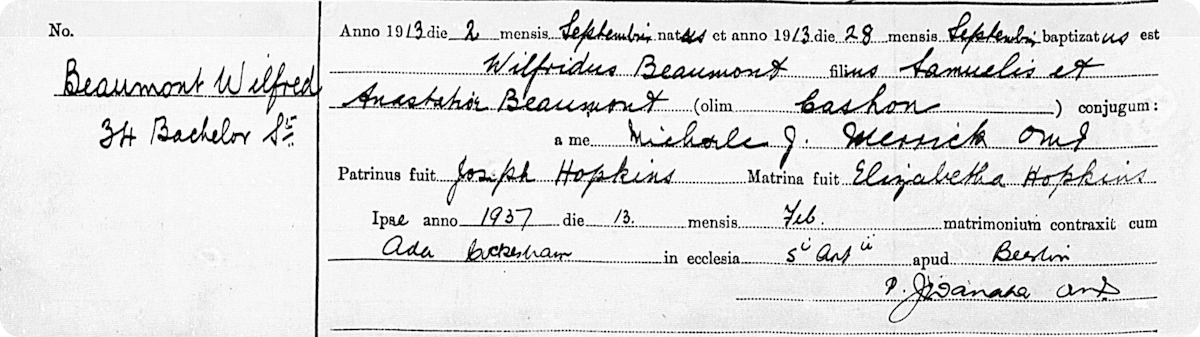 No.
Beaumont Wilfred
34 Bachelor St.
Anno 1913 die 2 mensis Septembris natus et anno 1913 die 28 mensis Septembris baptizatus est
Wilfridus Beaumont filius Samuelis et
Anastasiæ Beaumont (olim Cashon) conjugum:
a me Michaele J. Merrick OMI
Patrinus fuit Joseph Hopkins Matrina fuit Elizabetha Hopkins
Ipse anno 1937 die 13. mensis Feb. matrimonium contraxit cum
Ada in ecclesia Sti Antii apud
P. OMI